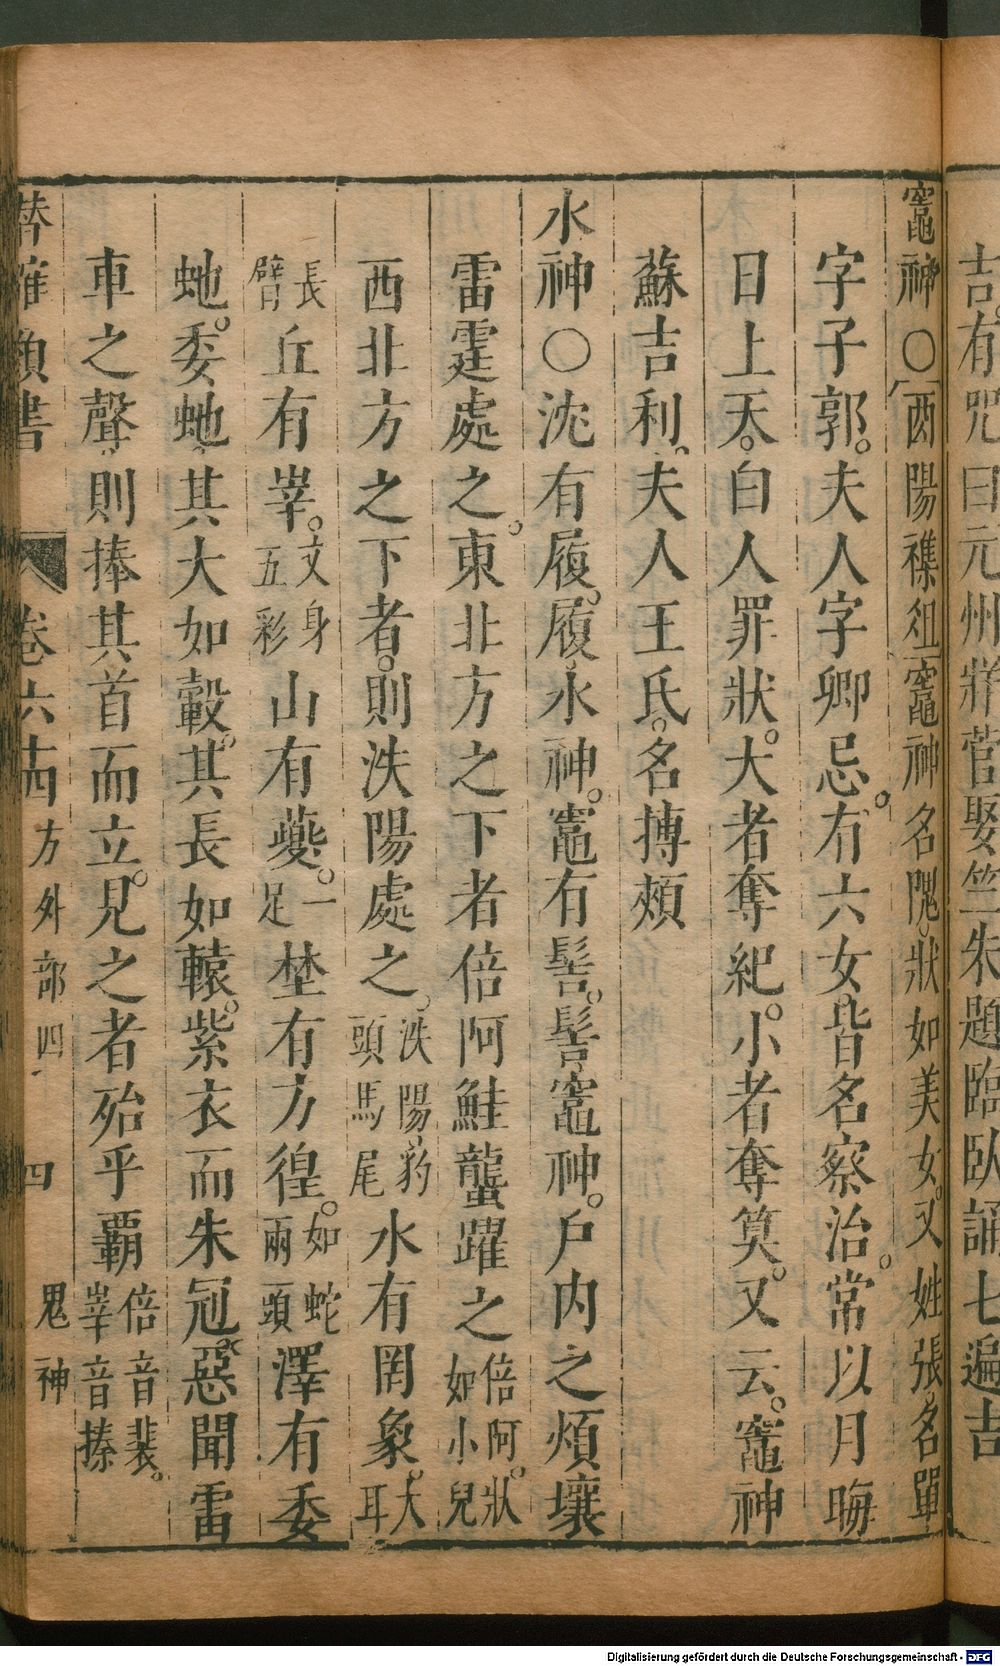 吉有咒曰元州牂菅娶竺朱題臨臥誦七遍吉
竈神〇酉陽襍俎竈神名隗。狀如美女。又姓張。名單
字子郭。夫人字卿忌。有六女。皆名察治。常以月晦
日上天。白人罪狀。大者奪紀。小者奪筭。又云。竈神
蘇吉利。夫人王氏。名摶頰
水神〇沈有履。履水神。竈有髻。髻竈神。戶內之煩壤
雷霆處之。東北方之下者倍阿鮭蠪躍之倍阿。狀如小兒
西北方之下者。則泆陽處之。泆陽豹頭馬尾水有罔象。大耳
長臂丘有峷。文身五彩山有夔。一足埜有方徨。如蛇兩頭澤有委
虵。委虵其大如轂。其長如轅。紫衣而朱冠。惡聞雷
車之聲則捧其首而立。見之者殆乎霸倍音裴。峷音搸
潛確類書 卷六十四方外部四 四 鬼神
Digitalisierung gefördert durch die Deutsche Forschungsgemeinschaft - DFG